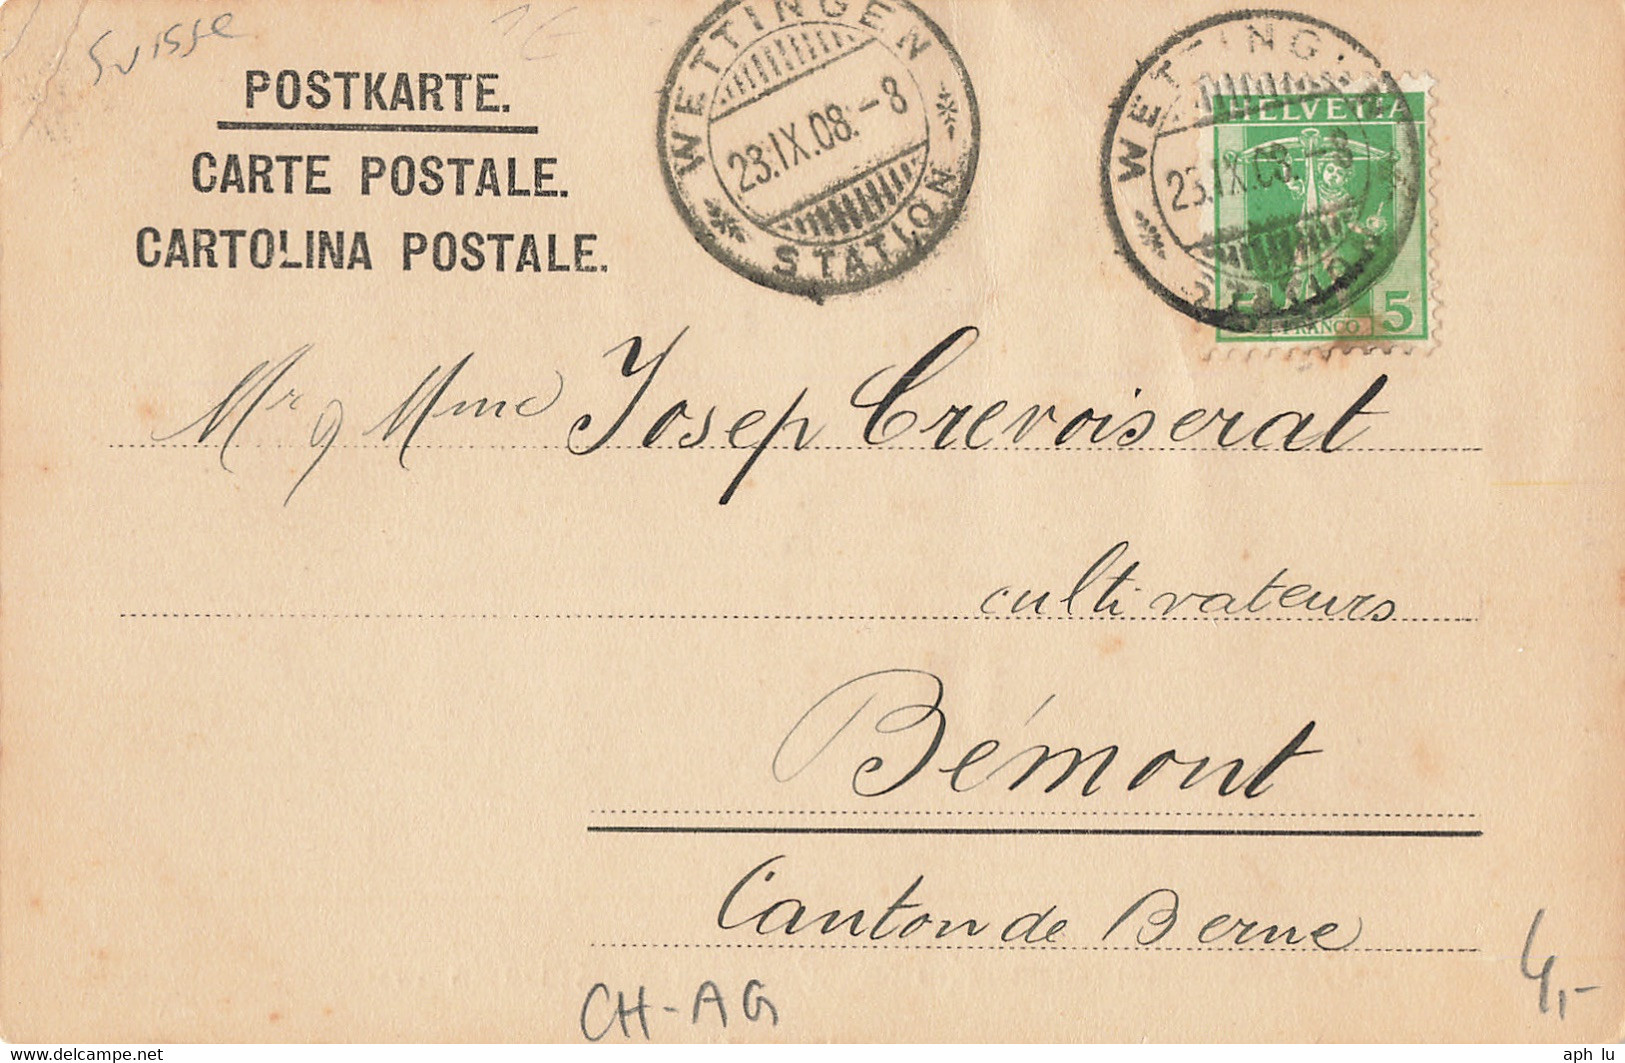 Suisse
POSTKARTE.
CARTE POSTALE.
CARTOLINA POSTALE.
WETTINGEN
23.IX.08.-8
STATION
WETTINGEN
23.IX.08.-8
STATION
HELVETIA
FRANCO
5
Mr & Mme Josep Crevoiserat
cultivateurs
Bémont
Canton de Berne
CH-AG
4,-
aph lu